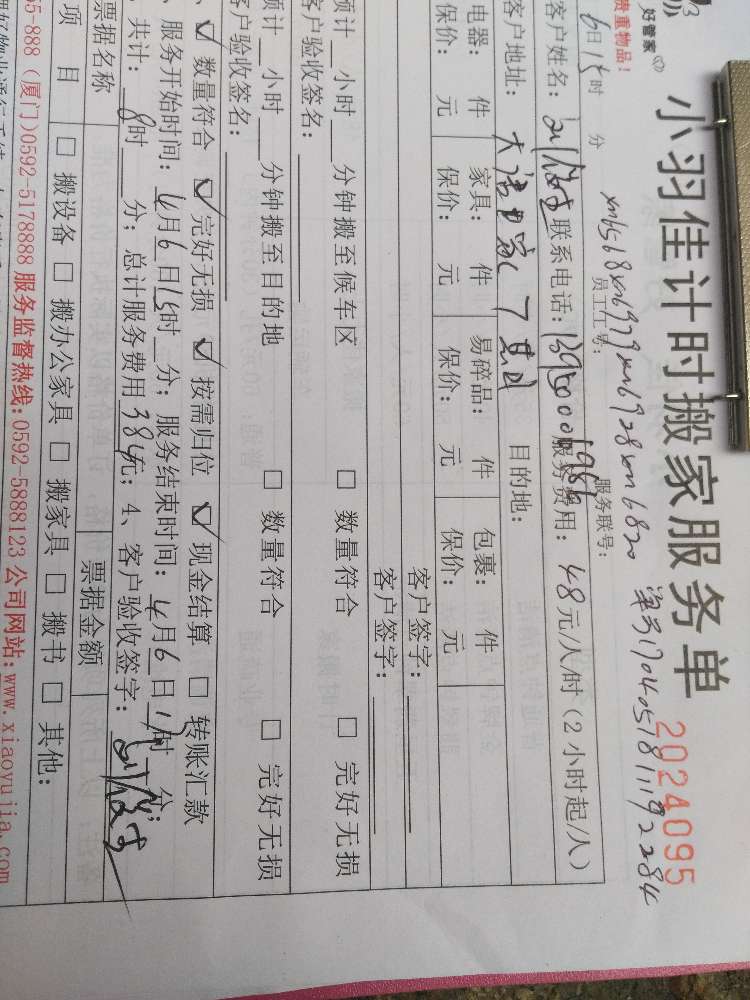 好管家
小羽佳计时搬家服务单
2024095
贵重物品!
员工工号: xm1568 xm6979 xm6928 xm6820
服务联号:
单号1704051811192284
6日15时 分
客户姓名:
联系电话:
服务费用: 48元/人/时(2小时起/人)
客户地址:
目的地:
电器: 件 家具: 件 易碎品: 件 包裹: 件 客户签字:
保价: 元 保价: 元 保价: 元 保价: 元 客户签字:
预计 小时 分钟搬至候车区 □ 数量符合 □ 完好无损
客户验收签名:
预计 小时 分钟搬至目的地 □ 数量符合 □ 完好无损
客户验收签名:
数量符合 完好无损 按需归位 现金结算 □ 转账汇款
、服务开始时间: 4月6日15时 分; 服务结束时间: 4月6日17时 分;
、共计: 8时 分; 总计服务费用384元; 4、客户验收签字:
票据名称 票据金额
项 目 □ 搬设备 □ 搬办公家具 □ 搬家具 □ 搬书 □ 其他:
65-888 (厦门)0592-5178888 服务监督热线:0592-5888123 公司网站:www.xiaoyujia.com